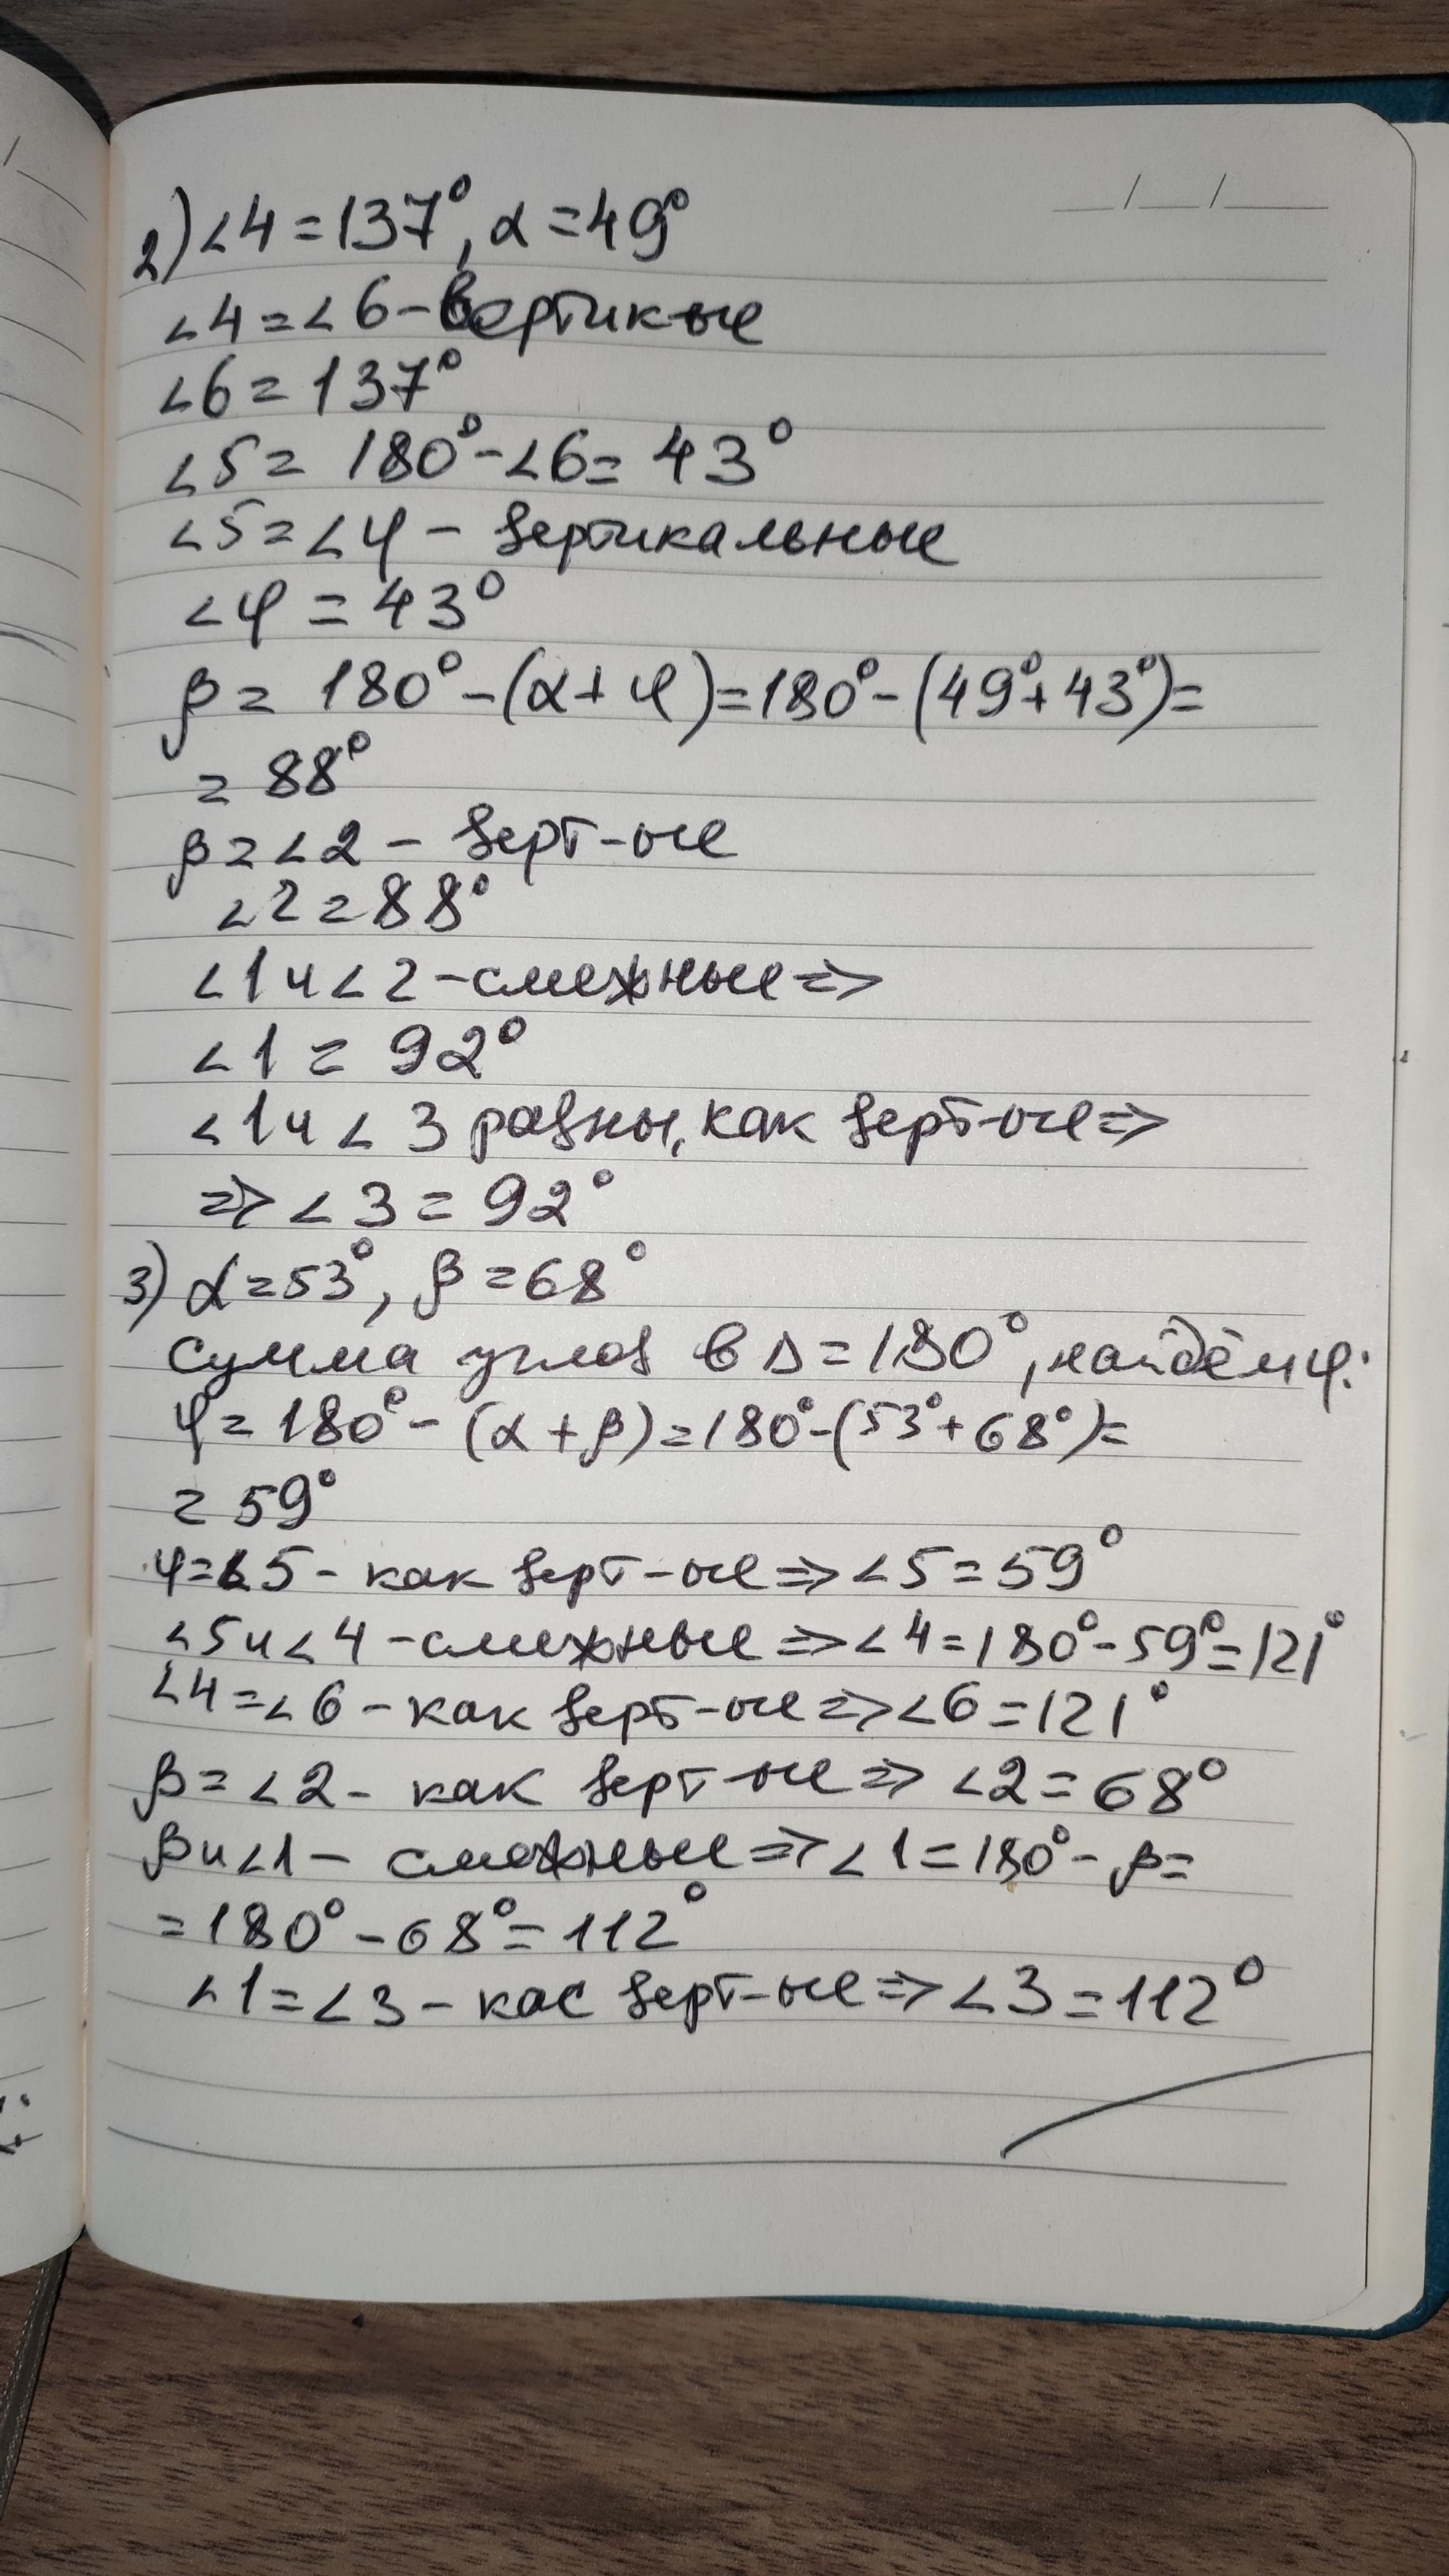 2) ∠4 = 137°, α = 49°
∠4 = ∠6 - вертикые
∠6 = 137°
∠5 = 180° - ∠6 = 43°
∠5 = ∠φ - вертикальные
∠φ = 43°
β = 180° - (α + φ) = 180° - (49° + 43°) =
= 88°
β = ∠2 - верт-ые
∠2 = 88°
∠1 и ∠2 - смежные =>
∠1 = 92°
∠1 и ∠3 равны, как верт-ые =>
=> ∠3 = 92°
3) α = 53°, β = 68°
Сумма углов в Δ = 180°, найдём φ:
φ = 180° - (α + β) = 180° - (53° + 68°) =
= 59°
φ = ∠5 - как верт-ые => ∠5 = 59°
∠5 и ∠4 - смежные => ∠4 = 180° - 59° = 121°
∠4 = ∠6 - как верт-ые => ∠6 = 121°
β = ∠2 - как верт-ые => ∠2 = 68°
β и ∠1 - смежные => ∠1 = 180° - β =
= 180° - 68° = 112°
∠1 = ∠3 - кас верт-ые => ∠3 = 112°